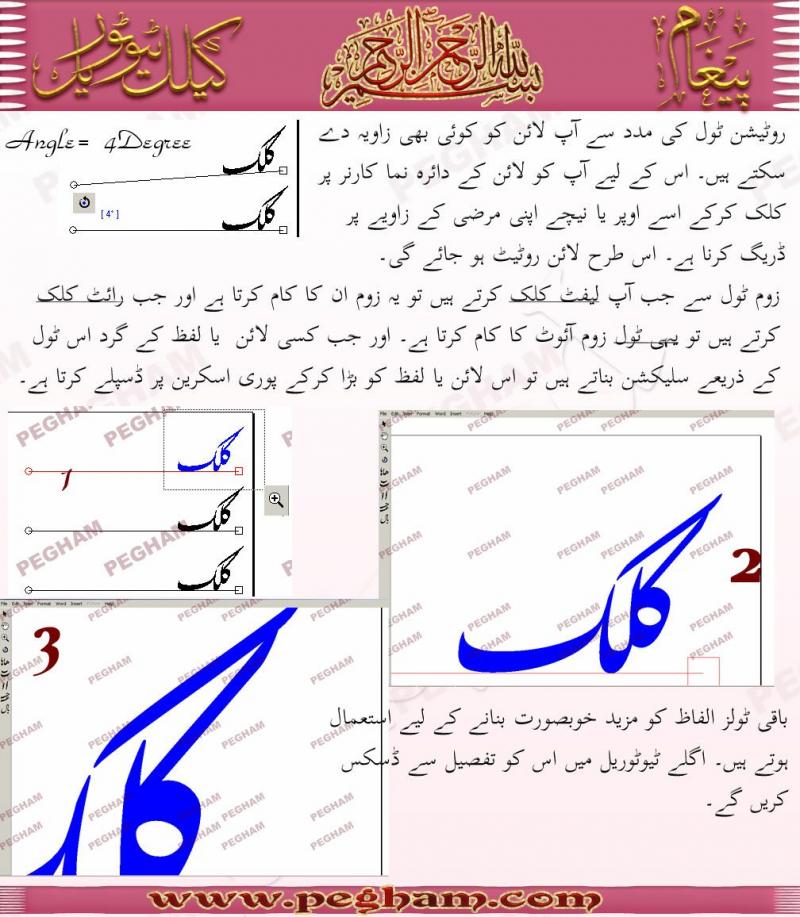 پیغام
بسم اللہ الرحمن الرحیم
کیلک ٹیوٹوریل
روٹیشن ٹول کی مدد سے آپ لائن کو کوئی بھی زاویہ دے
سکتے ہیں۔ اس کے لیے آپ کو لائن کے دائرہ نما کارنر پر
کلک کرکے اسے اوپر یا نیچے اپنی مرضی کے زاویے پر
ڈریگ کرنا ہے۔ اس طرح لائن روٹیٹ ہو جائے گی۔
Angle= 4Degree
کلک
[ 4° ]
کلک
زوم ٹول سے جب آپ لیفٹ کلک کرتے ہیں تو یہ زوم ان کا کام کرتا ہے اور جب رائٹ کلک
کرتے ہیں تو یہی ٹول زوم آئوٹ کا کام کرتا ہے۔ اور جب کسی لائن یا لفظ کے گرد اس ٹول
کے ذریعے سلیکشن بناتے ہیں تو اس لائن یا لفظ کو بڑا کرکے پوری اسکرین پر ڈسپلے کرتا ہے۔
PEGHAM
کلک
1
کلک
کلک
File Edit Format Word Insert
کلک
2
File Edit Format Word Insert
3
کلک
باقی ٹولز الفاظ کو مزید خوبصورت بنانے کے لیے استعمال
ہوتے ہیں۔ اگلے ٹیوٹوریل میں اس کو تفصیل سے ڈسکس
کریں گے۔
www.pegham.com